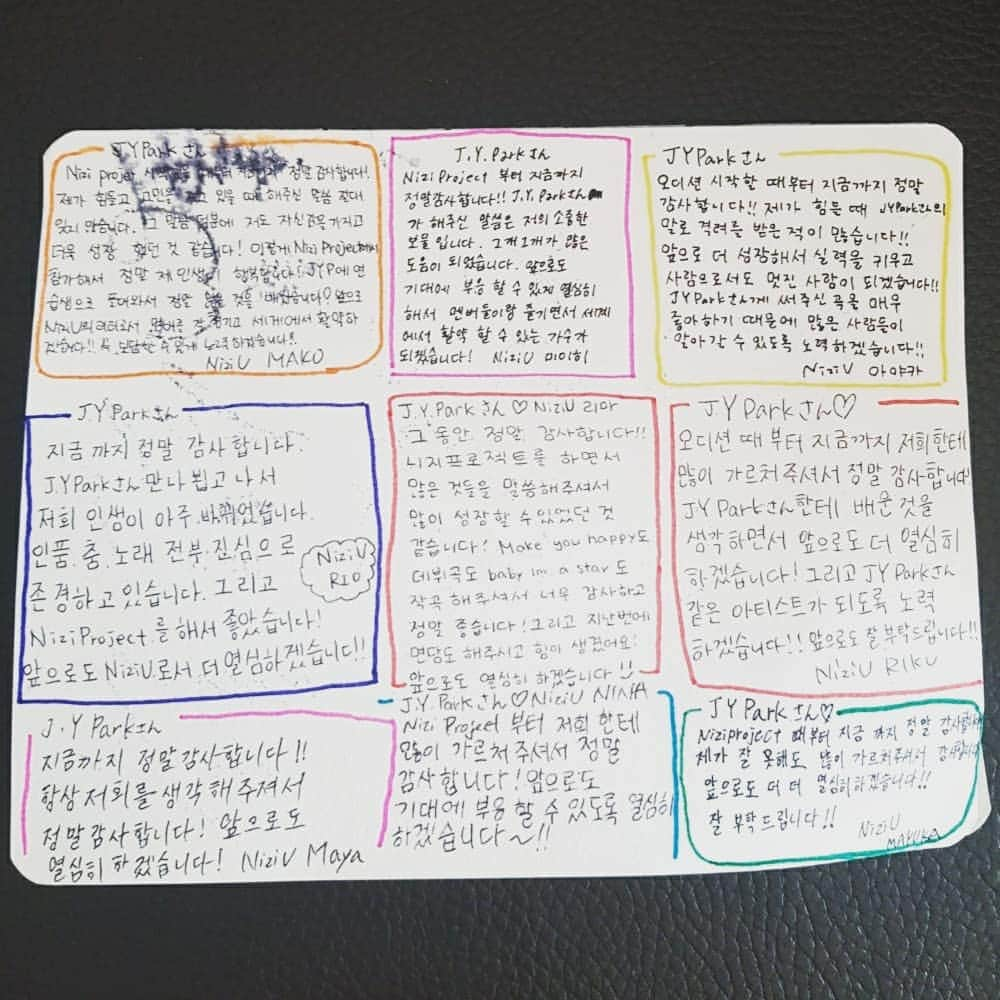 JYPark さん
Nizi project 시작 때부터 정말 감사합니다!
제가 힘들고 고민을 하고 있을 때 해주신 말씀 절대
잊지 않습니다. 그 말씀 덕분에 저도 자신감을 가지고
더욱 성장 했던 것 같습니다! 이렇게 Nizi Project에서
참가해서 정말 제 인생이 행복합니다! JYP에 연
습생으로 들어와서 정말 많은 것을 배웠습니다♡ 앞으로
NiziU의 리더로서 멤버를 잘 챙기고 세계에서 활약하
겠습니다!! 꼭 보답할 수 있게 노력하겠습니다!!
NiziU MAKO
J.Y.Park さん
Nizi Project 부터 지금까지
정말감사합니다!! J.Y.Parkさん
가 해주신 말씀은 저의 소중한
보물 입니다. 그거 1개가 많은
도움이 되었습니다. 앞으로도
기대에 부응 할 수 있게 열심히
해서 멤버들이랑 즐기면서 세계
에서 활약 할 수 있는 가수가
되겠습니다! NiziU 미이히
JYParkさん
오디션 시작한 때부터 지금까지 정말
감사합니다!! 제가 힘든 때 JYParkさん의
말로 격려를 받은 적이 많습니다!!
앞으로 더 성장해서 실력을 키우고
사람으로서도 멋진 사람이 되겠습니다!!
JYParkさん게 써주신 곡을 매우
좋아하기 때문에 많은 사람들이
알아갈 수 있도록 노력하겠습니다!!
NiziU 아야카
JYParkさん
지금 까지 정말 감사 합니다.
JYParkさん만나 뵙고 나서
저희 인생이 아주 바뀌었습니다.
인품.춤.노래 전부 진심으로
존경하고 있습니다. 그리고
NiziProject 를 해서 좋았습니다!
앞으로도 NiziU로서 더 열심하겠습니다!!
NiziU
RIO
J.Y.Park さん ♡ NiziU 리마
그 동안 정말 감사합니다!!
니지프로젝트를 하면서
많은 것들을 말씀해주셔서
많이 성장할 수 있었던 것
같습니다! Make you happy도
데뷔곡도 baby im a star도
작곡 해주셔서 너무 감사하고
정말 좋습니다! 그리고 지난번에
면담도 해주시고 힘이 생겼어요!
앞으로도 열심히 하겠습니다 !!
J.Y Parkさん♡
오디션 때 부터 지금까지 저희한테
많이 가르쳐주셔서 정말 감사합니다!
JY Parkさん한테 배운 것을
생각하면서 앞으로도 더 열심히
하겠습니다! 그리고 JY Parkさん
같은 아티스트가 되도록 노력
하겠습니다!! 앞으로도 잘 부탁드립니다!!
NiziU RIKU
J.Y Parkさん
지금까지 정말감사합니다!!
항상 저희를 생각해 주져서
정말감사합니다! 앞으로도
열심히 하겠습니다! NiziU Maya
J.Y Parkさん♡NiziU NINA
Nizi Project 부터 저희 한테
많이 가르쳐 주셔서 정말
감사 합니다! 앞으로도
기대에 부응 할 수 있도록 열심히
하겠습니다~!!
JYParkさん♡
Niziproject 때부터 지금 까지 정말 감사합니다
제가 잘 못해도 많이 가르쳐주셔서 감사합니다
앞으로도 더 더 열심히하겠습니다!!
잘 부탁드립니다!!
NiziU
MAYUKA